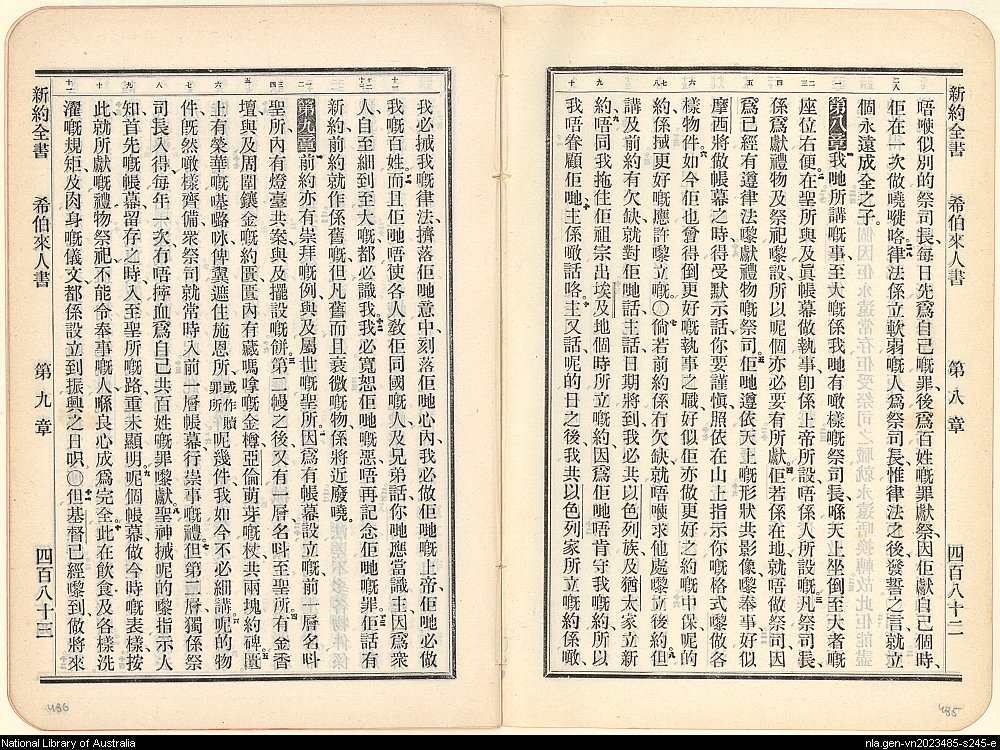 新約全書 希伯來人書 第八章 四百八十二
似別的祭司長每日先爲自己嘅罪後爲百姓嘅罪獻祭因佢獻自己個時
佢在一次做曉嘥咯律法係立軟弱嘅人爲祭司長惟律法之後發誓之言就立
個永遠成全之子
第八章 我哋所講嘅事至大嘅係我哋有噉樣嘅祭司長喺天上坐倒至大者嘅
座位右便在聖所與及眞帳幕做執事卽係上帝所設唔係人所設嘅凡祭司長
係爲獻禮物及祭祀嚟設所以呢個亦必要有所獻佢若係在地就唔做祭司因
爲已經有遵律法嚟獻禮物嘅祭司佢哋遵依天上嘅形狀共影像嚟奉事好似
摩西將做帳幕之時得受默示話你要謹愼照依在山上指示你嘅格式嚟做各
樣物件如今佢也曾得倒更好嘅執事之職好似佢亦做更好之約嘅中保呢的
約係搣更好嘅應許嚟立嘅〇倘若前約係有欠缺就唔求他處嚟立後約但
講及前約有欠缺就對佢哋話主話日期將到我必共以色列族及猶太家立新
約唔同我拖住佢祖宗出埃及地個時所立嘅約因爲佢哋唔肯守我嘅約所以
我唔眷顧佢哋主係噉話咯主又話呢的日之後我共以色列家所立嘅約係噉
我必搣我嘅律法擠落佢哋意中刻落佢哋心內我必做佢哋嘅上帝佢哋必做
我嘅百姓而且佢哋唔使各人敎佢同國嘅人及兄弟話你哋應當識主因爲衆
人自至細到至大嘅都必識我我必寬恕佢哋嘅惡唔再記念佢哋嘅罪佢話有
新約前約就作係舊嘅但凡舊而且衰微嘅物係將近廢曉
第九章 前約亦有崇拜嘅例與及屬世嘅聖所因爲有帳幕設立嘅前一層名呌
聖所內有燈臺共案與及擺設嘅餅第二幔之後又有一層名呌至聖所有金香
壇與及周圍鑲金嘅約匱匱內有藏嗎嗱嘅金樽亞倫萌芽嘅杖共兩塊約碑匱
上有榮華嘅𠼻𡀔咪俾翼遮住施恩所或作贖罪所呢幾件我如今不必細講呢的物
件旣然噉樣齊備衆祭司就常時入前一層帳幕行崇事嘅禮但第二層獨係祭
司長入得每年一次冇唔㩒血爲自己共百姓嘅罪嚟獻聖神搣呢的嚟指示人
知首先嘅帳幕留存之時入至聖所嘅路重未顯明呢個帳幕做今時嘅表樣按
此就所獻嘅禮物祭祀不能令奉事嘅人喺良心成爲完全此在飲食及各樣洗
濯嘅規矩及肉身嘅儀文都係設立到振興之日呮〇但基督已經嚟到做將來
新約全書 希伯來人書 第九章 四百八十三
486
485
National Library of Australia
nla.gen-vn2023485-s245-e